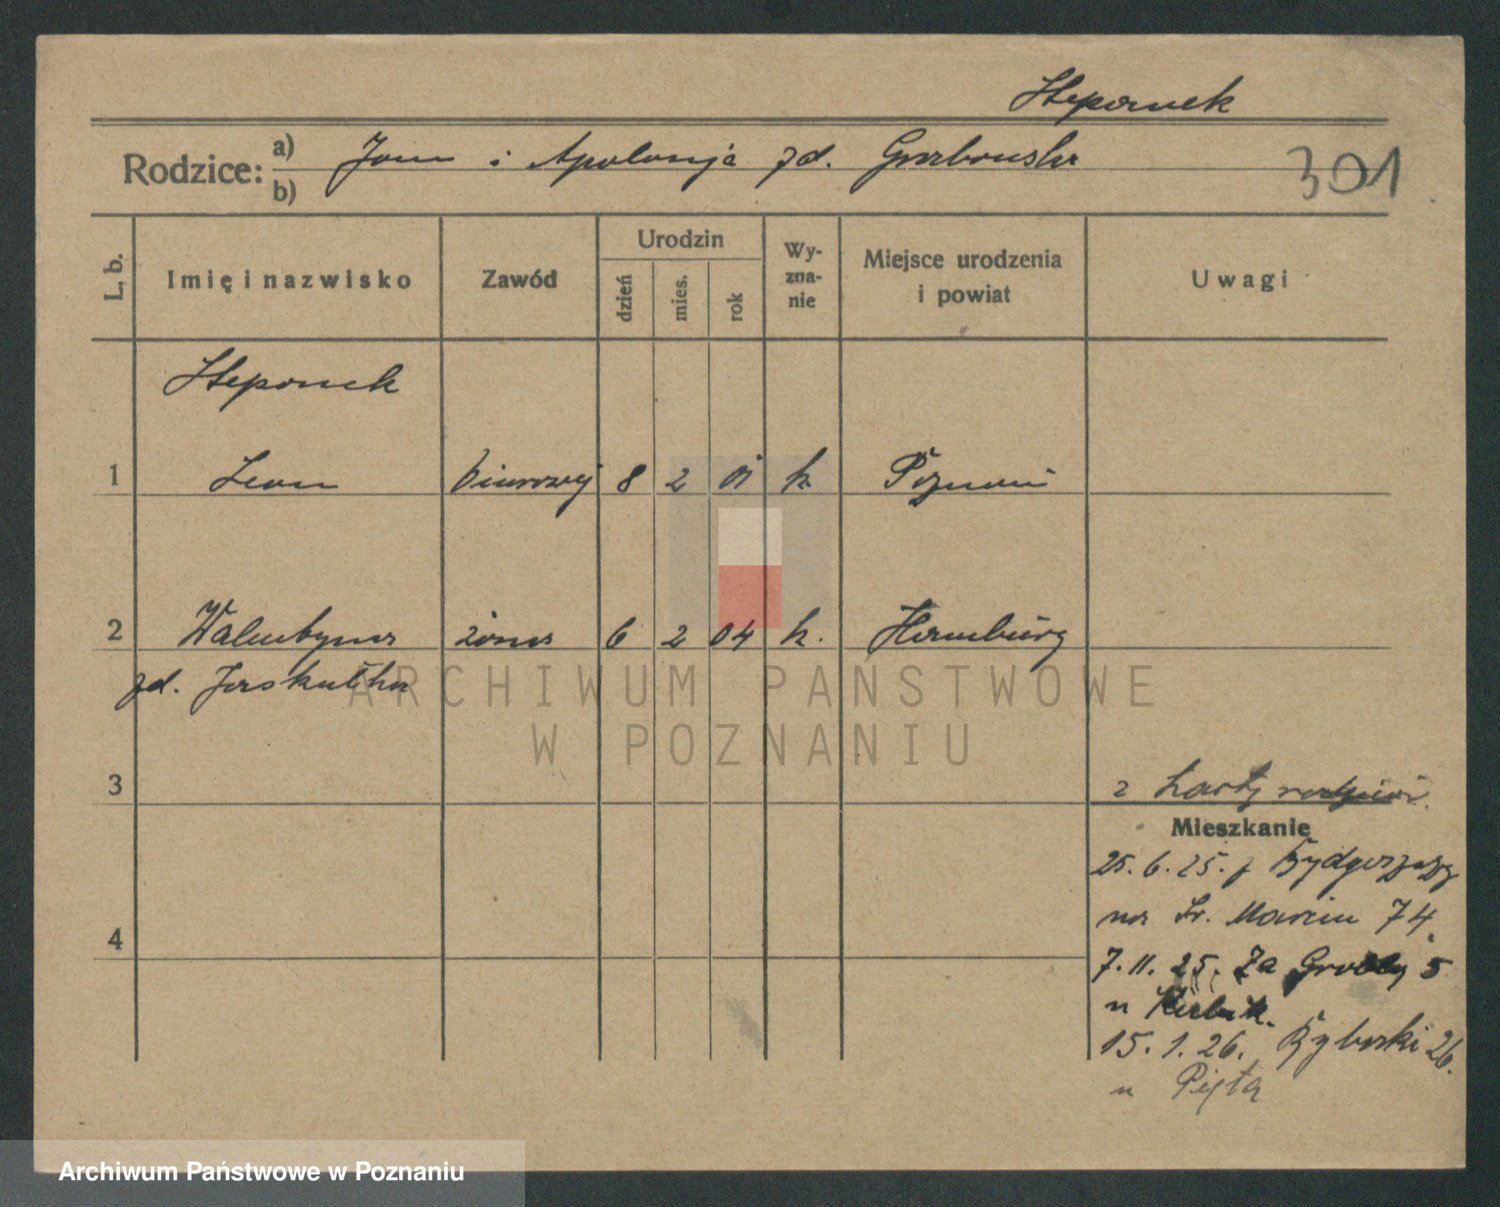 Stepanek
Rodzice: a) b) Jan i Apolonja zd. Grabowska
301
L. b.
Imię i nazwisko
Zawód
Urodzin
dzień
mies.
rok
Wy-
zna-
nie
Miejsce urodzenia
i powiat
Uwagi
Stepanek
1 Leon biurowy 8 2 01 k Poznań
2 Walentyna żona 6 2 04 k. Hamburg
zd. Jaskulska
3
z karty rodziców.
Mieszkanie
25.6.25. z Bydgoszczy
na Św. Marcin 74.
7.11.25. Za Groblą 5
u
4
15.1.26. Rybaki 26.
u Pięta
ARCHIWUM PAŃSTWOWE
W POZNANIU
Archiwum Państwowe w Poznaniu